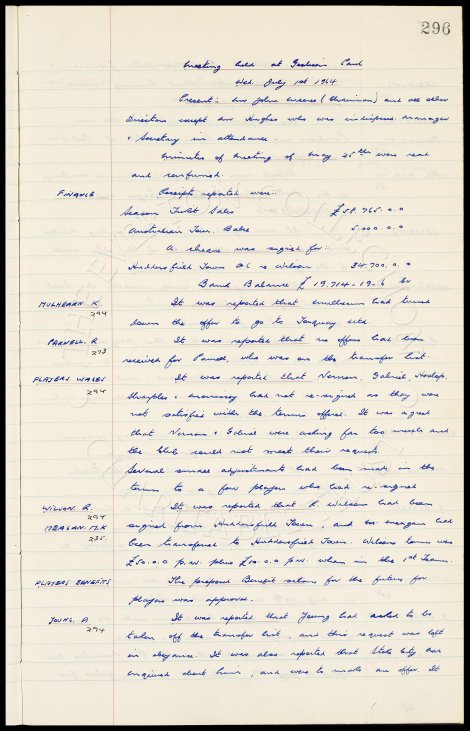 296
Meeting held at Goodison Park
Wed. July 1st 1964
Present:- Mr John Moores (Chairman) and all other
Directors except Mr Hughes who was indisposed. Manager
& Secretary in attendance.
Minutes of meeting of May 25th were read
and confirmed.
FINANCE Receipts reported were:-
Season Ticket Sales £58,765.0.0
Australian Tour. Balce 5,000.0.0
A cheque was signed for:-
Huddersfield Town A/C re Wilson 34,700.0.0
Bank Balance £19,714-19-6
MULHEARN K. It was reported that Mulhearn had turned
294
down the offer to go to Torquay Utd.
PARNELL. R It was reported that no offers had been
293
received for Parnell, who was on the transfer list.
PLAYERS WAGES It was reported that Vernon, Gabriel, Heslop,
294
Sharples & Morrissey had not re-signed as they were
not satisfied with the terms offered. It was agreed
that Vernon & Gabriel were asking for too much and
the Club could not meet their requests.
Several minor adjustments had been made in the
terms to a few players who had re-signed
WILSON. R. It was reported that R. Wilson had been
294
signed from Huddersfield Town, and M. Meagan had
MEAGAN. M.K
235
been transferred to Huddersfield Town. Wilsons terms were
£50.0.0 p.w. plus £10.0.0 p.w. when in the 1st Team.
PLAYERS BENEFITS The proposed Benefit scheme for the future for
players was approved.
YOUNG. A It was reported that Young had asked to be
294
taken off the transfer list, and this request was left
in abeyance. It was also reported that Stoke City had
enquired about him, and were to make an offer. It